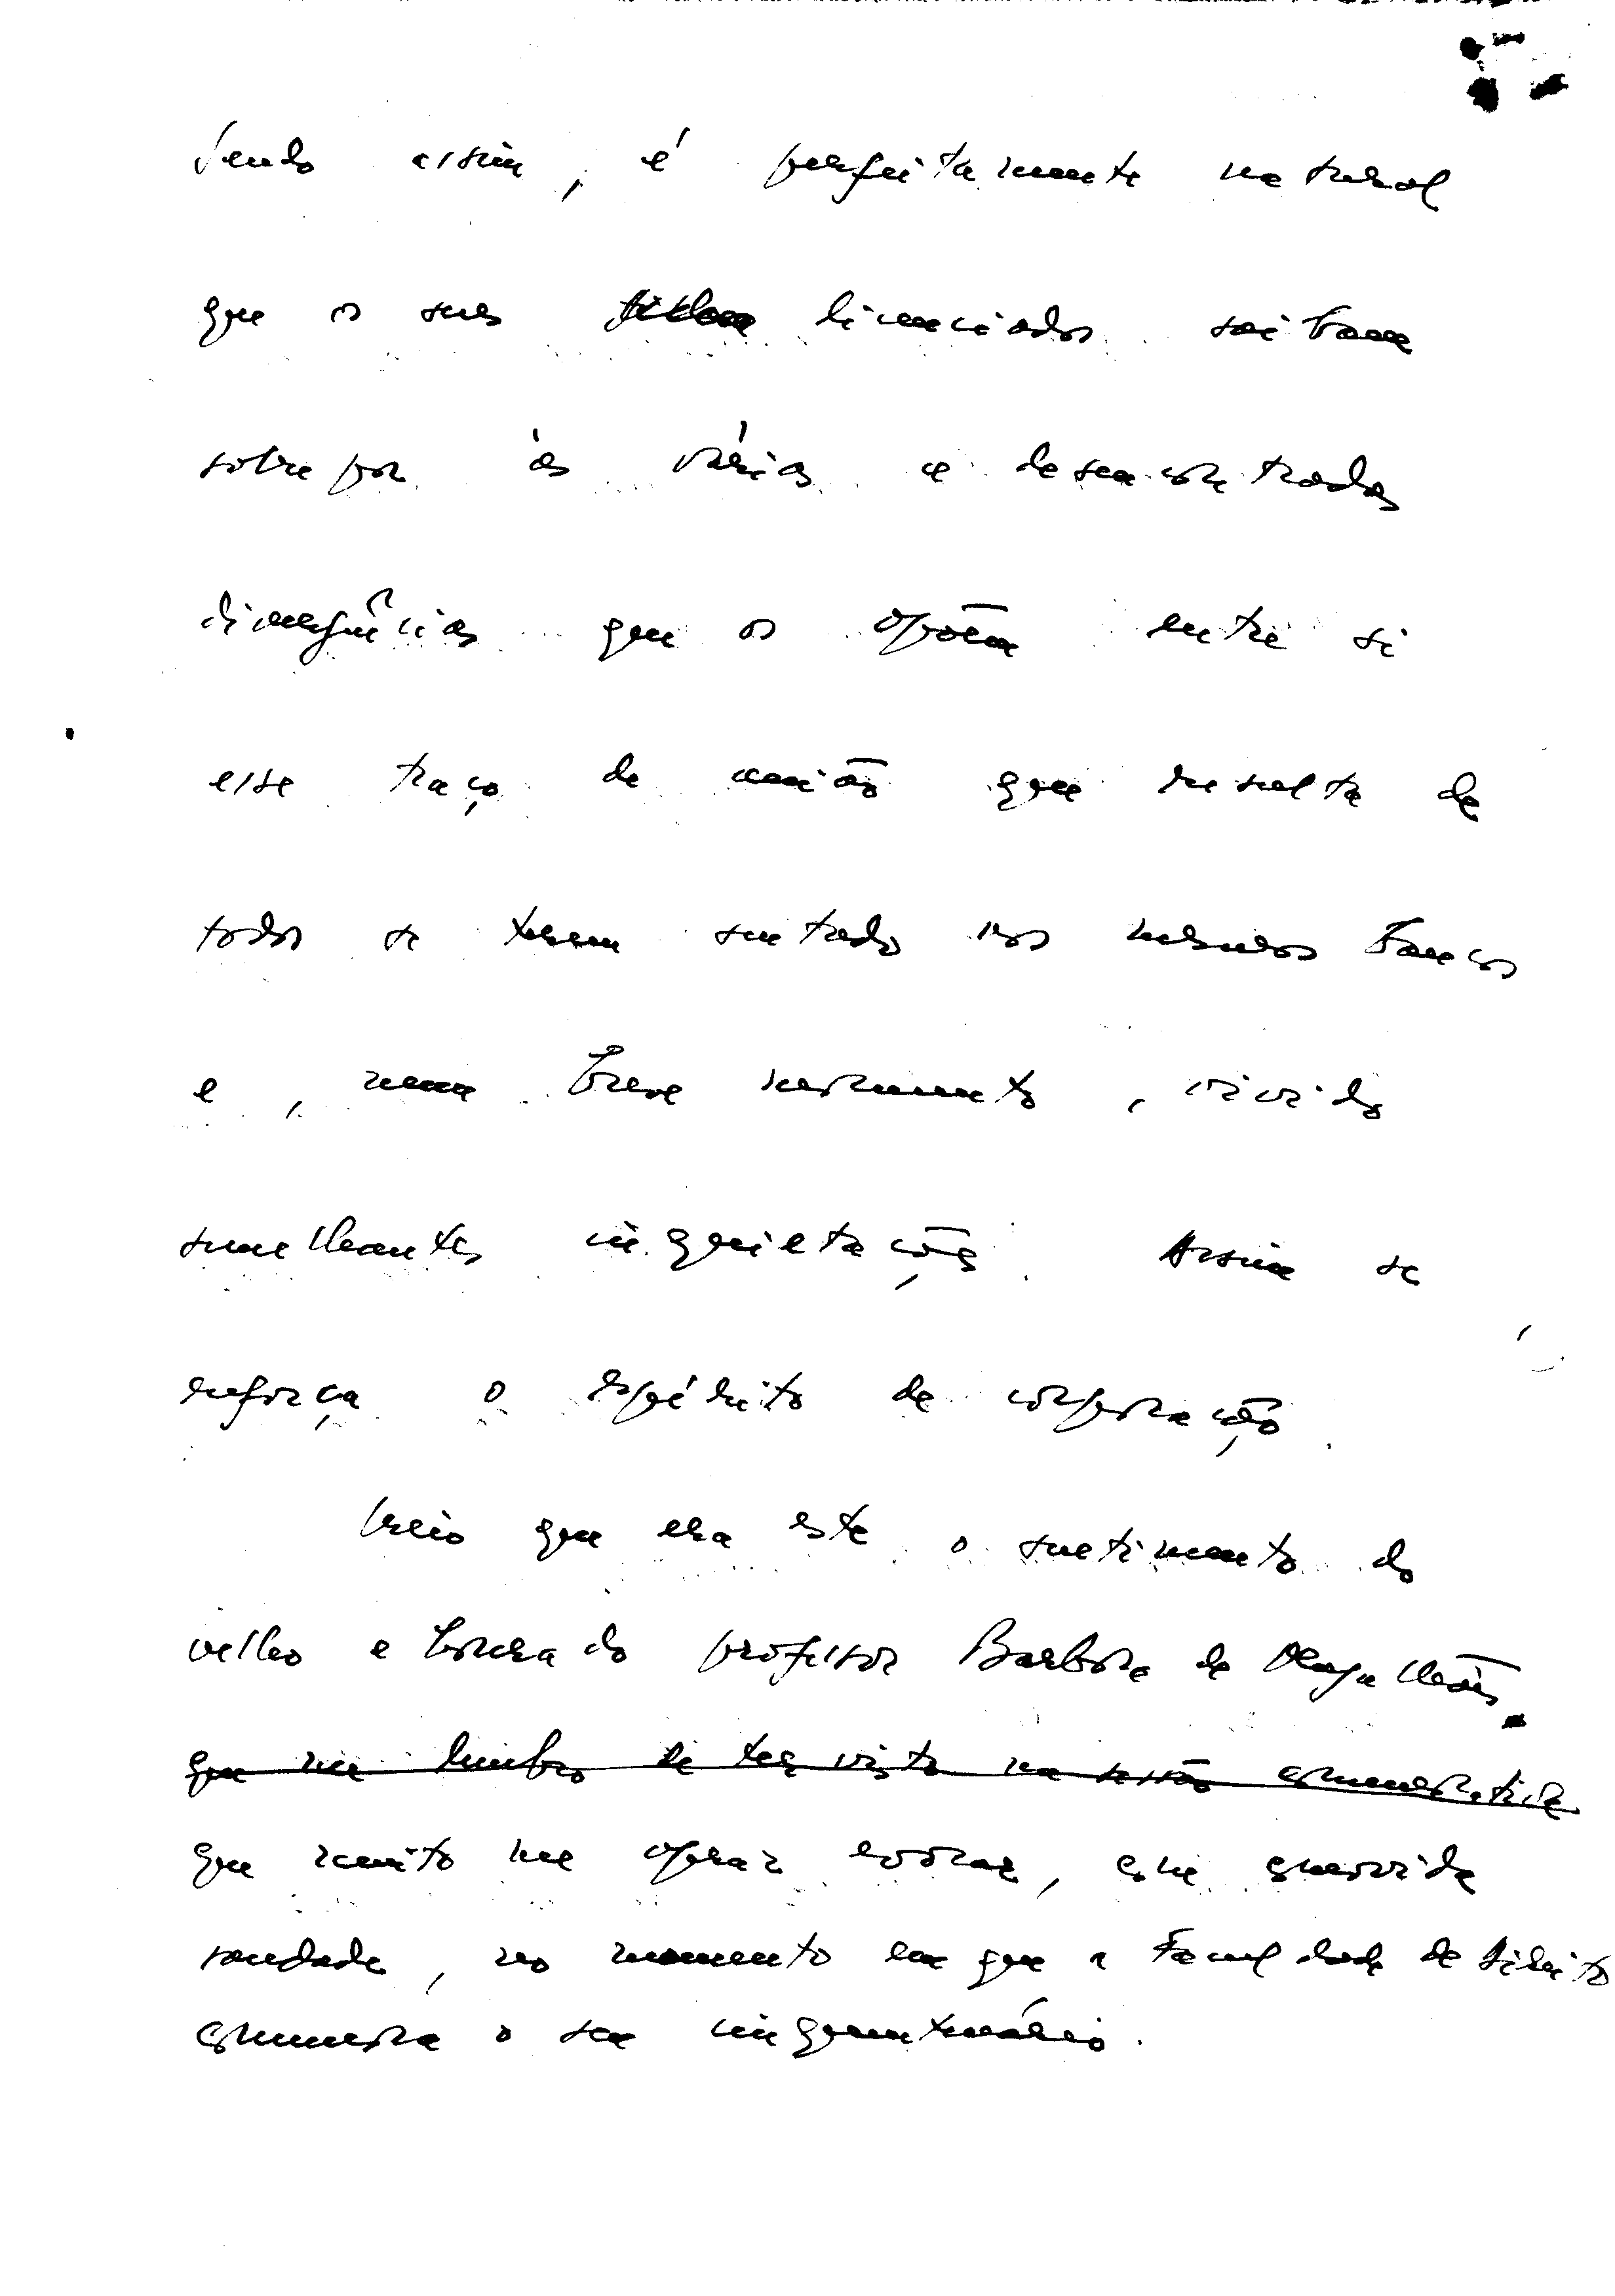 Sendo assim, é perfeitamente natural
que os seus licenciados saibam
sobrepor às várias e desencontradas
divergências que os opõem entre si
esse traço de união que resulta de
todos se terem sentado nos mesmos bancos
e, num breve momento, vivido
semelhantes inquietações. Assim se
reforça o espírito de corporação.
Creio que era este o sentimento do
velho e honrado professor Barbosa de Magalhães,
que me lembro de ter visto na sessão comemorativa
que muito me apraz evocar, com comovida
saudade, no momento em que a Faculdade de Direito
comemora o seu cinquentenário.